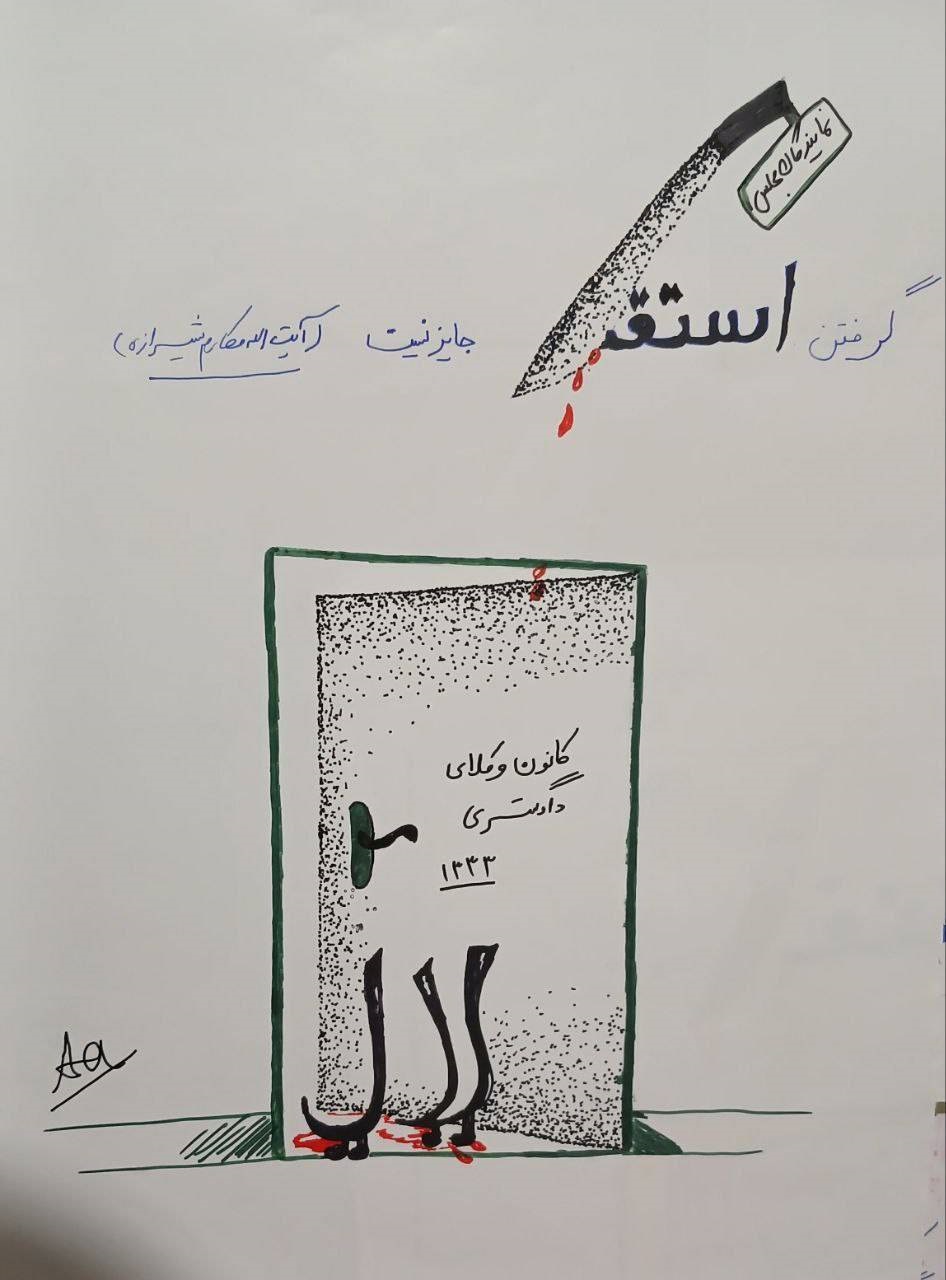 نمایندگان مجلس
گرفتن استقـ جایز نیست (آیت الله مکارم شیرازی)
کانون وکلای
دادگستری
۱۳۳۳
لال
Aa